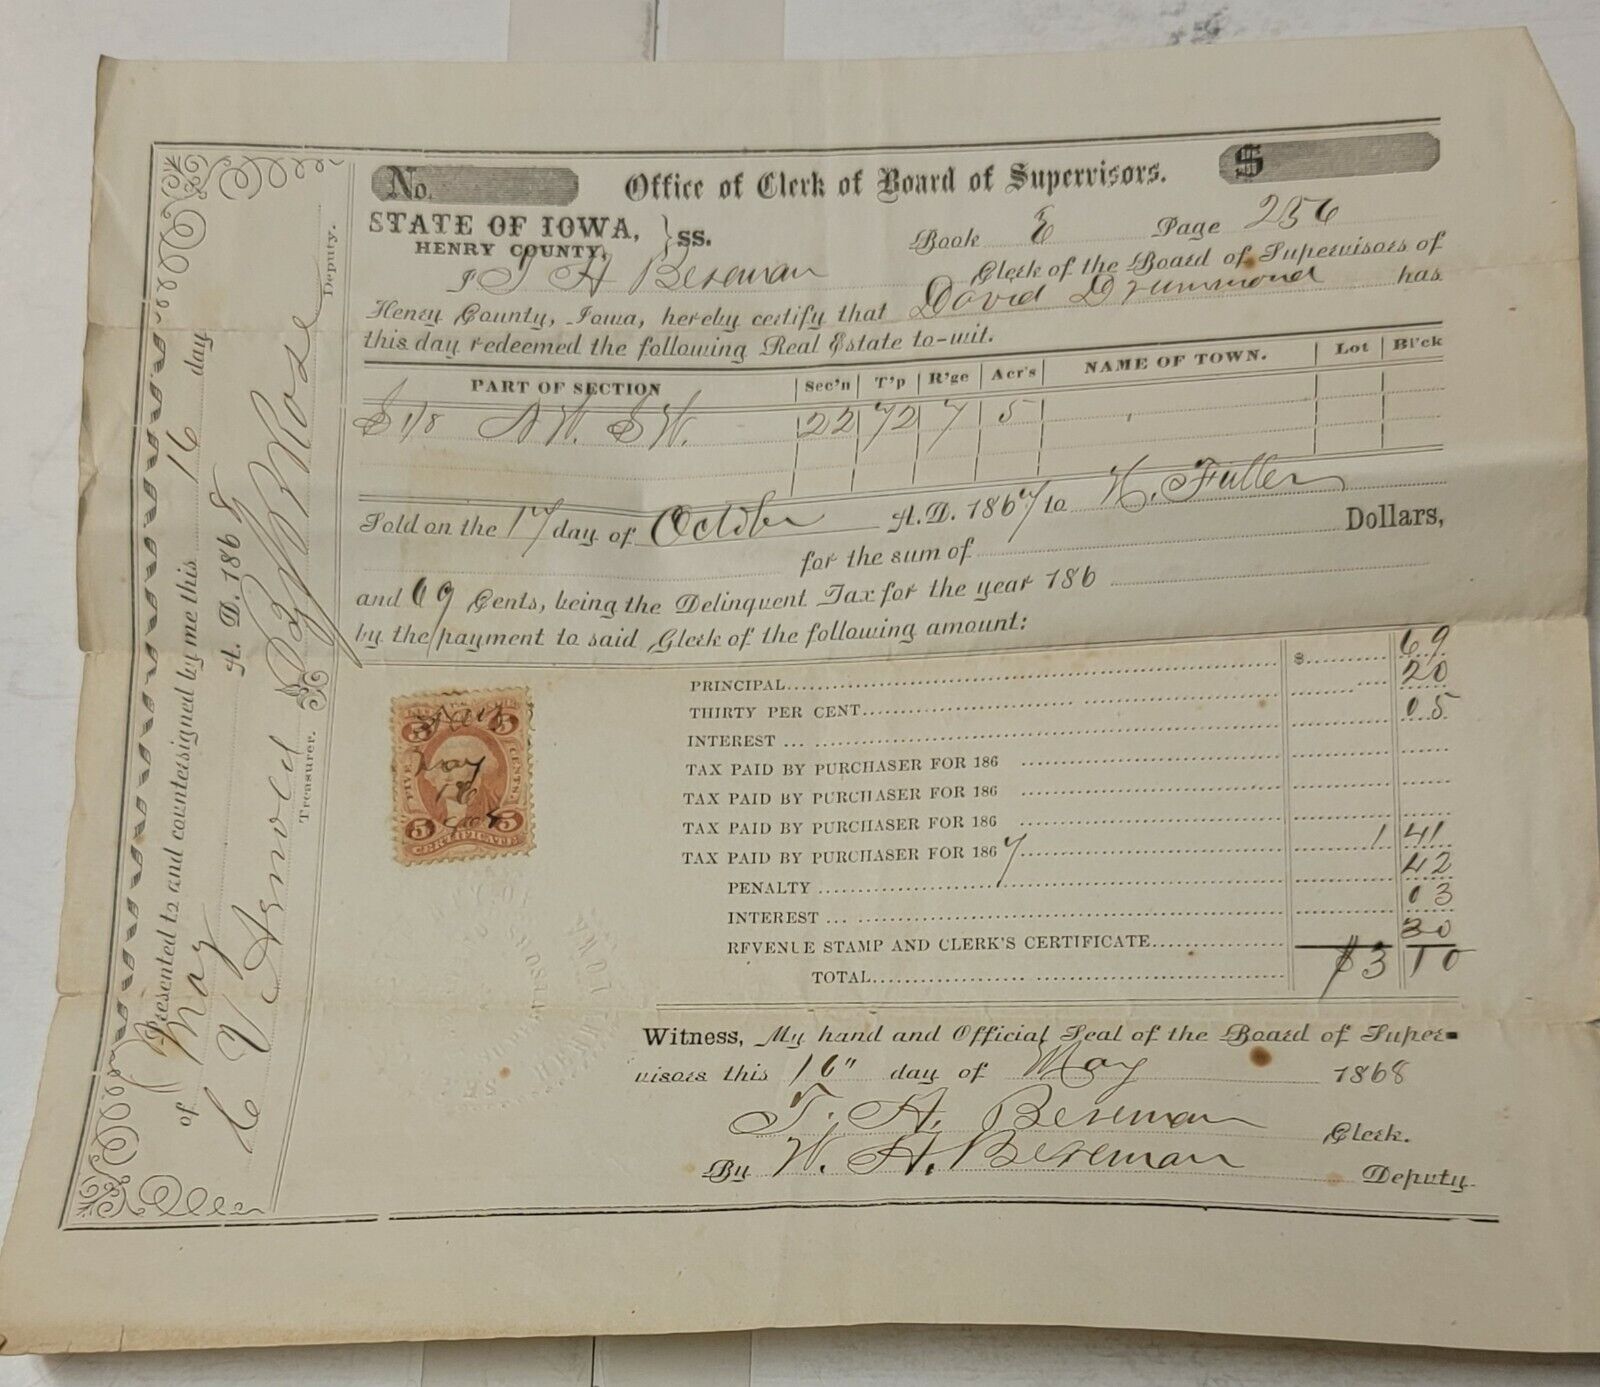 No.
Office of Clerk of Board of Supervisors.
$
STATE OF IOWA,
HENRY COUNTY, } ss.
Book E Page 256
I T A Bereman Clerk of the Board of Supervisors of
Henry County, Iowa, hereby certify that David Drummond has
this day redeemed the following Real Estate to-wit.
PART OF SECTION Sec'n T'p R'ge Acr's NAME OF TOWN. Lot Bl'ck
S 1/8 NW. SW. 22 72 7 5
Sold on the 17 day of October A. D. 1867 to W. Fuller
for the sum of Dollars,
and 69 Cents, being the Delinquent Tax for the year 186
by the payment to said Clerk of the following amount:
PRINCIPAL $ 69
THIRTY PER CENT 20
INTEREST 05
TAX PAID BY PURCHASER FOR 186
TAX PAID BY PURCHASER FOR 186
TAX PAID BY PURCHASER FOR 186
TAX PAID BY PURCHASER FOR 1867 1 41
PENALTY 42
INTEREST 03
REVENUE STAMP AND CLERK'S CERTIFICATE 30
TOTAL $3 10
Witness, My hand and Official Seal of the Board of Super-
visors this 16" day of May 1868
T. A. Bereman Clerk.
By W. A. Bereman Deputy
5 5
May
16
FIVE CENTS.
5 5
CERTIFICATE
Presented to and countersigned by me this 16 day
of May A. D. 1868
C V Arnold Treasurer.
Rose Deputy.